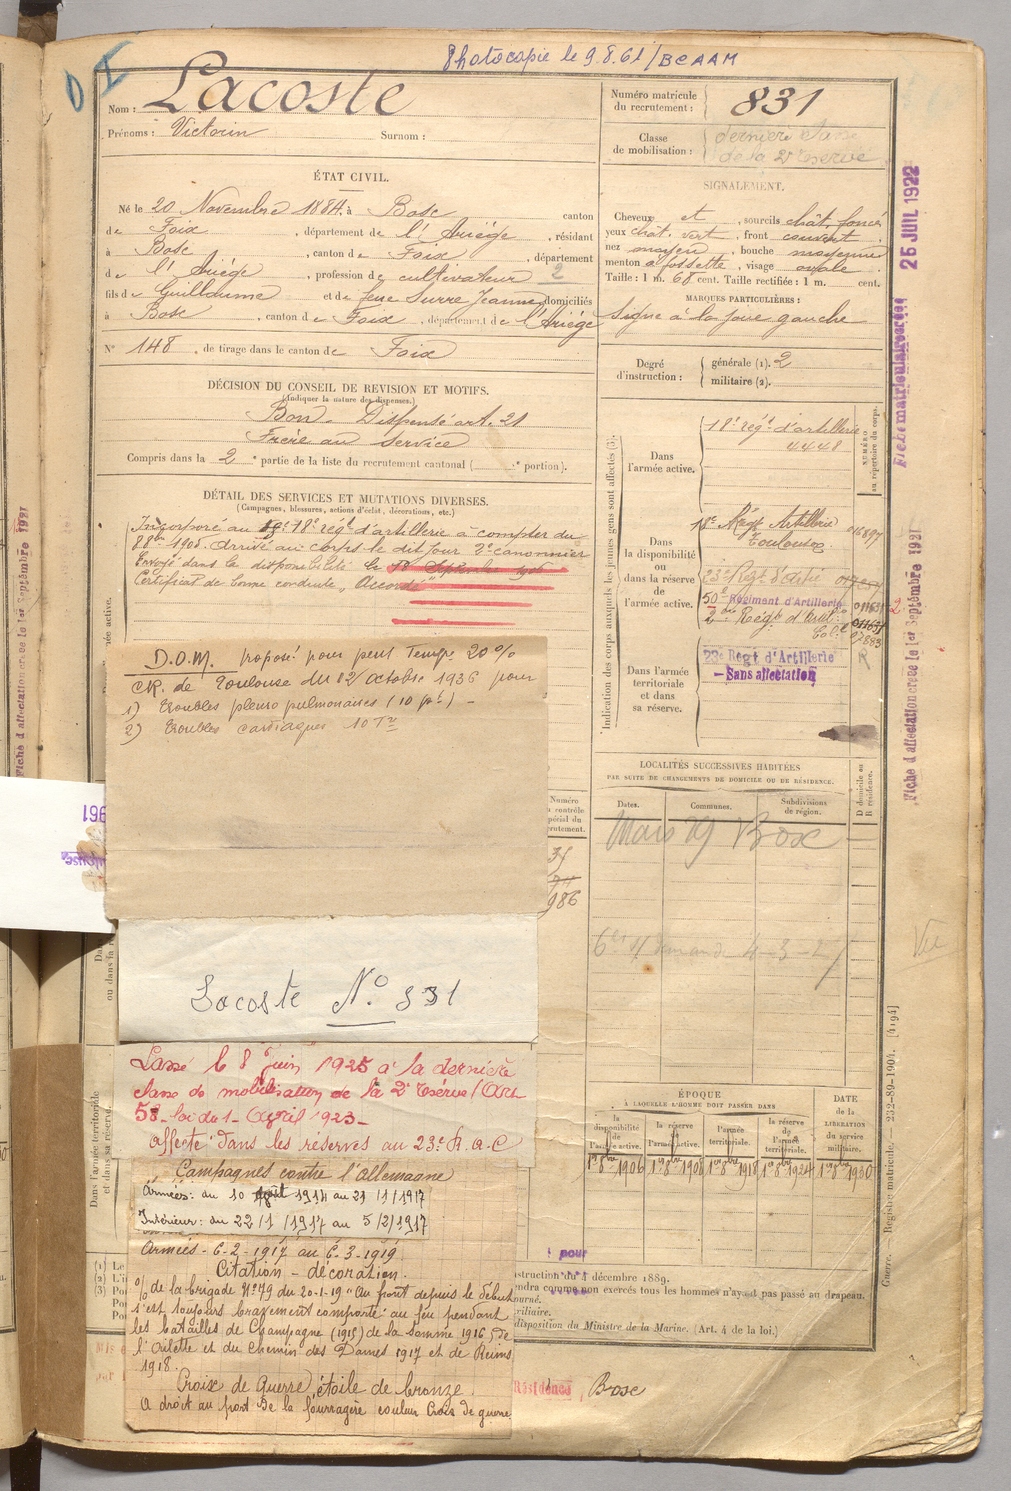 Photocopie le 9.8.61/BCAAM
Nom : Lacoste
Prénoms : Victorin Surnom :
ÉTAT CIVIL.
Né le 20 Novembre 1884, à Bosc canton
de Foix, département de l'Ariège, résidant
à Bosc, canton de Foix, département
de l'Ariège, profession de cultivateur 2
fils de Guillaume et de feue Surre Jeanne, domiciliés
à Bosc, canton de Foix, département de l'Ariège
N° 148, de tirage dans le canton de Foix
DÉCISION DU CONSEIL DE REVISION ET MOTIFS.
(Indiquer la nature des dispenses.)
Bon - Dispensé art. 21
Frère au Service
Compris dans la 2e partie de la liste du recrutement cantonal ( e portion).
DÉTAIL DES SERVICES ET MUTATIONS DIVERSES.
(Campagnes, blessures, actions d'éclat, décorations, etc.)
Incorporé au 18e régt d'artillerie à compter du
8 8bre 1905. Arrivé au corps le dit jour 2e canonnier
Envoyé dans la disponibilité le 18 Septembre 1906
Certificat de bonne conduite „Accordé"
D.O.M. proposé pour pent Temp. 20 %
CR. de Toulouse du 12 Octobre 1936 pour
1) Troubles pleuro pulmonaires (10 pt) -
2) Troubles cardiaques 10
Numéro
au contrôle
spécial du
recrutement.
986
Lacoste N° 831
Classé le 8 Juin 1925 à la dernière
classe de mobilisation de la 2e réserve (Art
58 - loi du 1 - Avril 1923 -
affecté dans les réserves au 23e R.A.C
Campagnes contre l'Allemagne
Armées : du 10 Août 1914 au 21/1/1917
Intérieur : du 22/1/1917 au 5/2/1917
Armées - 6-2-1917 au 6-3-1919
Citation - décoration.
O/ de la brigade N°79 du 20-1-19 "Au front depuis le début
s'est toujours bravement comporté au feu pendant
les batailles de Champagne (1915) de la Somme 1916, de
l'Ailette et du Chemin des Dames 1917 et de Reims
1918.
Croix de Guerre étoile de bronze.
A droit au port de la fourragère couleur Croix de guerre
Numéro matricule
du recrutement : 831
Classe
de mobilisation : dernière classe
de la 2e réserve
SIGNALEMENT.
Cheveux et, sourcils chât. foncé
yeux chât. vert, front couvert
nez moyen, bouche moyenne
menton à fossette, visage ovale
Taille : 1 m. 68 cent. Taille rectifiée : 1 m. cent.
MARQUES PARTICULIÈRES :
Signe à la joue gauche
Degré
d'instruction :
générale (1). 2
militaire (2).
Indication des corps auxquels les jeunes gens sont affectés (3).
NUMÉRO
au répertoire du corps.
Dans
l'armée active.
18e régt d'artillerie
4448
Dans
la disponibilité
ou
dans la réserve
de
l'armée active.
18e Régt Artillerie
Toulouse 016897
23e Régt d'Artie
50e Régiment d'Artillerie
2me Régt d'Artie
Col.le
Dans l'armée
territoriale
et dans
sa réserve.
23e Régt d'Artillerie
- Sans affectation
LOCALITÉS SUCCESSIVES HABITÉES
PAR SUITE DE CHANGEMENTS DE DOMICILE OU DE RÉSIDENCE.
D domicile ou
R résidence.
Dates. Communes. Subdivisions
de région.
Mars 29 Bosc
ÉPOQUE
À LAQUELLE L'HOMME DOIT PASSER DANS
la
disponibilité
de
l'armée active.
la réserve
de
l'armée active.
l'armée
territoriale.
la réserve
de
l'armée
territoriale.
DATE
de la
LIBÉRATION
du service
militaire.
1er 8bre 1906 1er 8bre 1908 1er 8bre 1918 1er 8bre 1924 1er 8bre 1930
pour
instruction du 4 décembre 1889.
comme non exercés tous les hommes n'ayant pas passé au drapeau.
disposition du Ministre de la Marine. (Art. 4 de la loi.)
Résidence Bosc
25 JUIL 1922
Fiche matriculaire créée
Fiche d'affectation créée le 1er Septembre 1921
Vu
Guerre. — Registre matricule. — 232-89-1904. [4194]
Fiche d'affectation créée le 1er Septembre 1921
Dans l'armée territoriale
et dans sa réserve.
1961